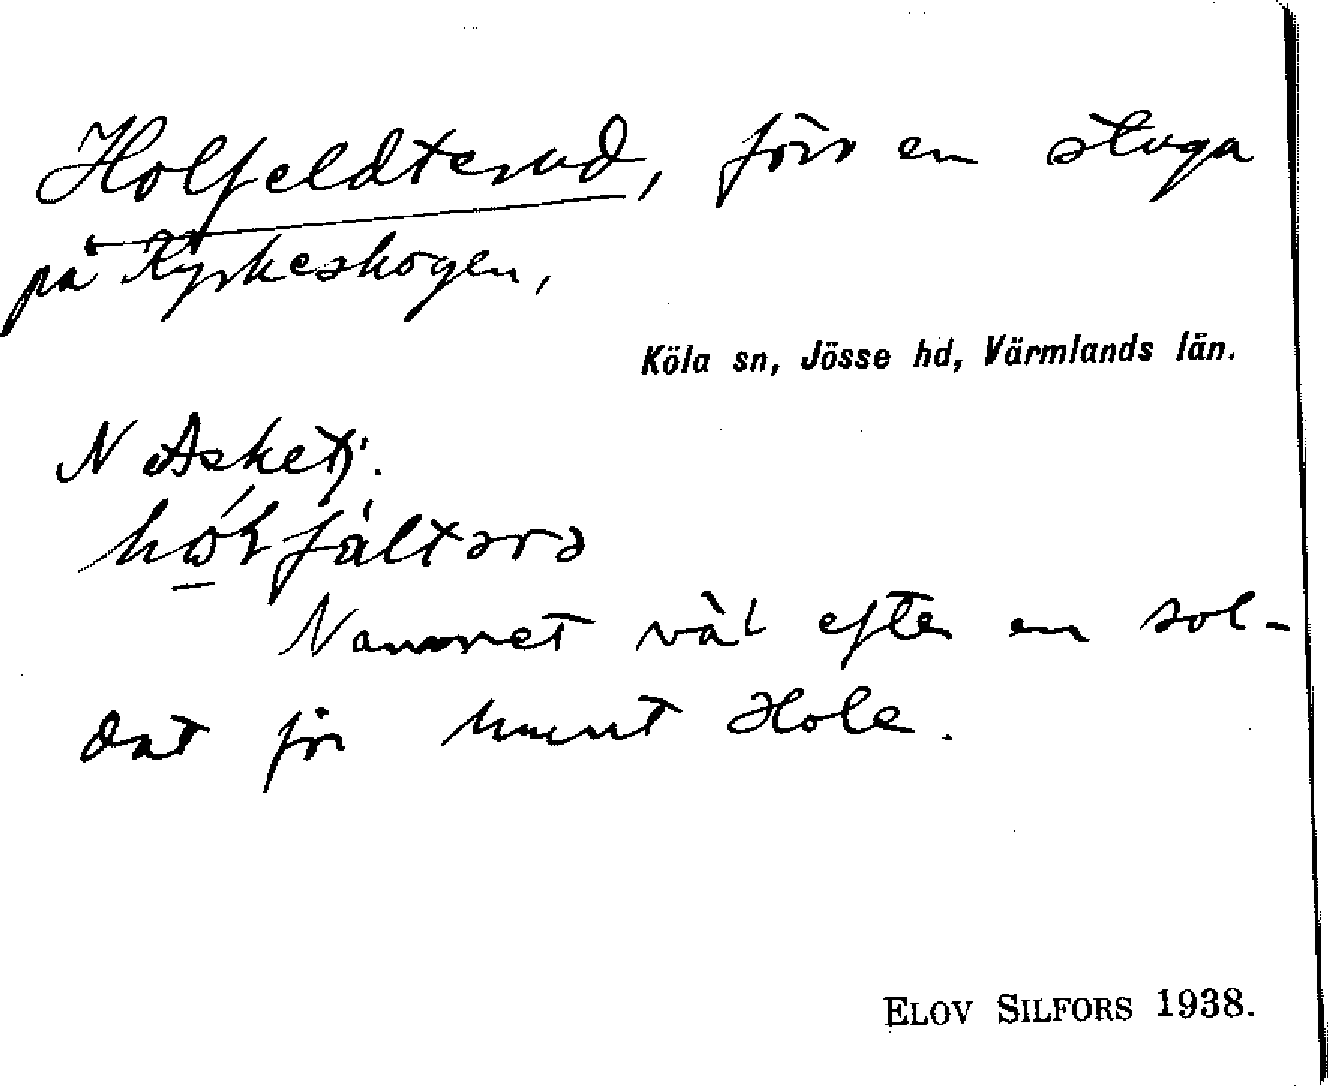 Holfeldterud, förr en stuga
på Kyrkeskogen,
Köla sn, Jösse hd, Värmlands län.
N
Namnet väl efter en sol-
dat för Hole.
ELOV SILFORS 1938.